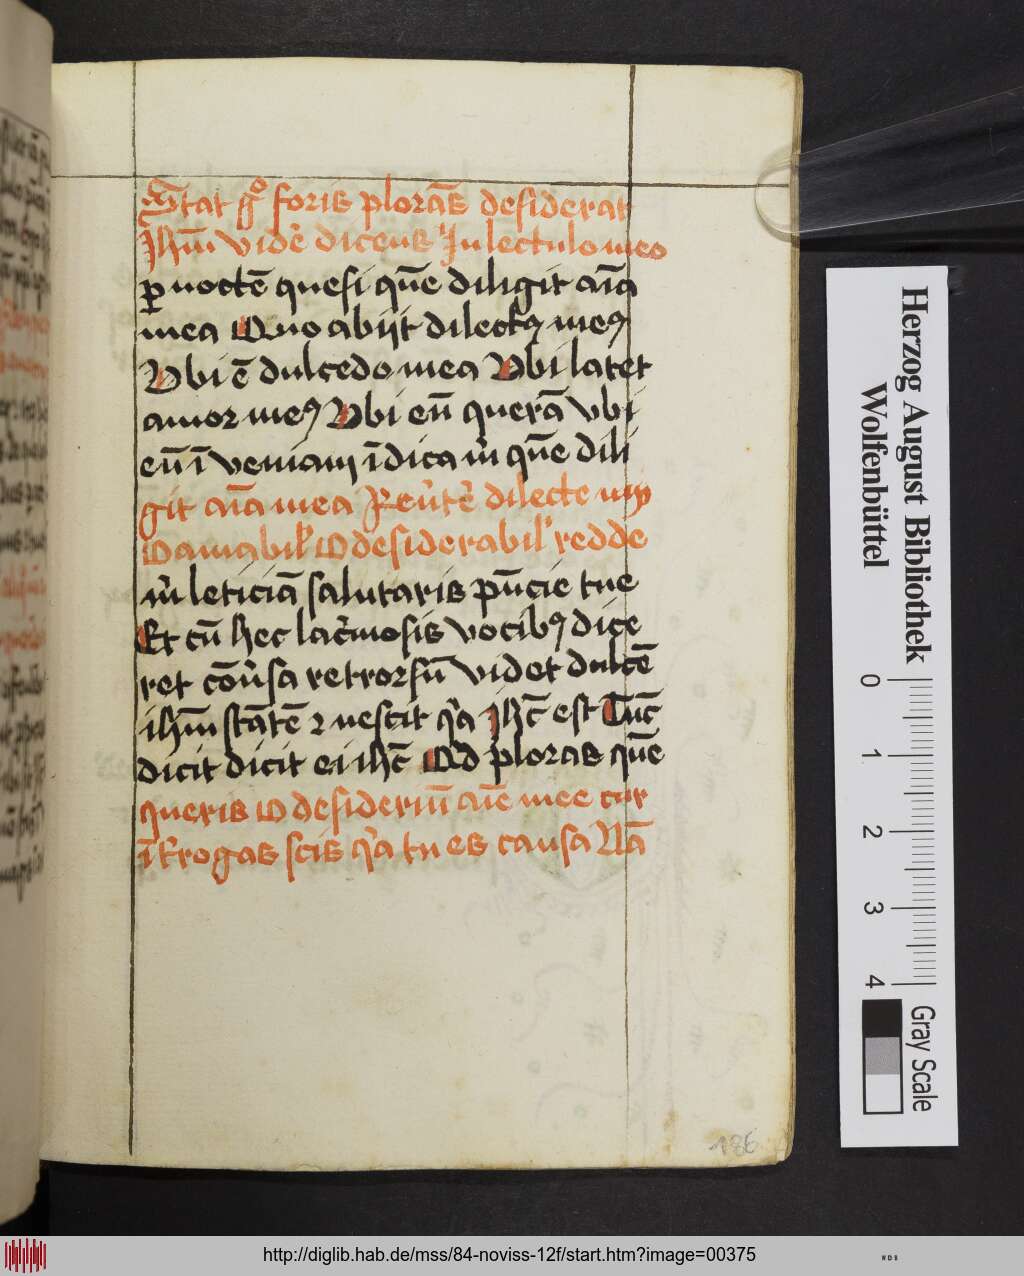 Stat gͦ foris plorās desiderat
Jhm̄ videˀ dicens Jn lectulo meo
ꝑ noctē quesi quē diligit aīa
mea Quo abijt dilectꝯ meꝯ
Vbi ē dulcedo mea Vbi latet
amor meꝯ Vbi eū querā vbi
eū īveniam īdica mˀ quē dili
git aīa mea Reuˀtēˀ dilecte my
O amabilˀ O desiderabilˀ redde
mˀ leticiā salutaris pn̄cie tue
Et cū hec lacˀmosis vocibꝯ dice
ret cōuˀsa retrorsū videt dulcē
ihm̄ stātē ⁊ nescit qˀa jhc̄ est Tūc
dicit dicit ei ihc̄ Qd̄ ploras quē
queris O desideriū aīe mee cur
īt̄rogas scis qˀa tu es causa Nā
186
Herzog August Bibliothek
Wolfenbüttel
0 1 2 3 4
Gray Scale
http://diglib.hab.de/mss/84-noviss-12f/start.htm?image=00375